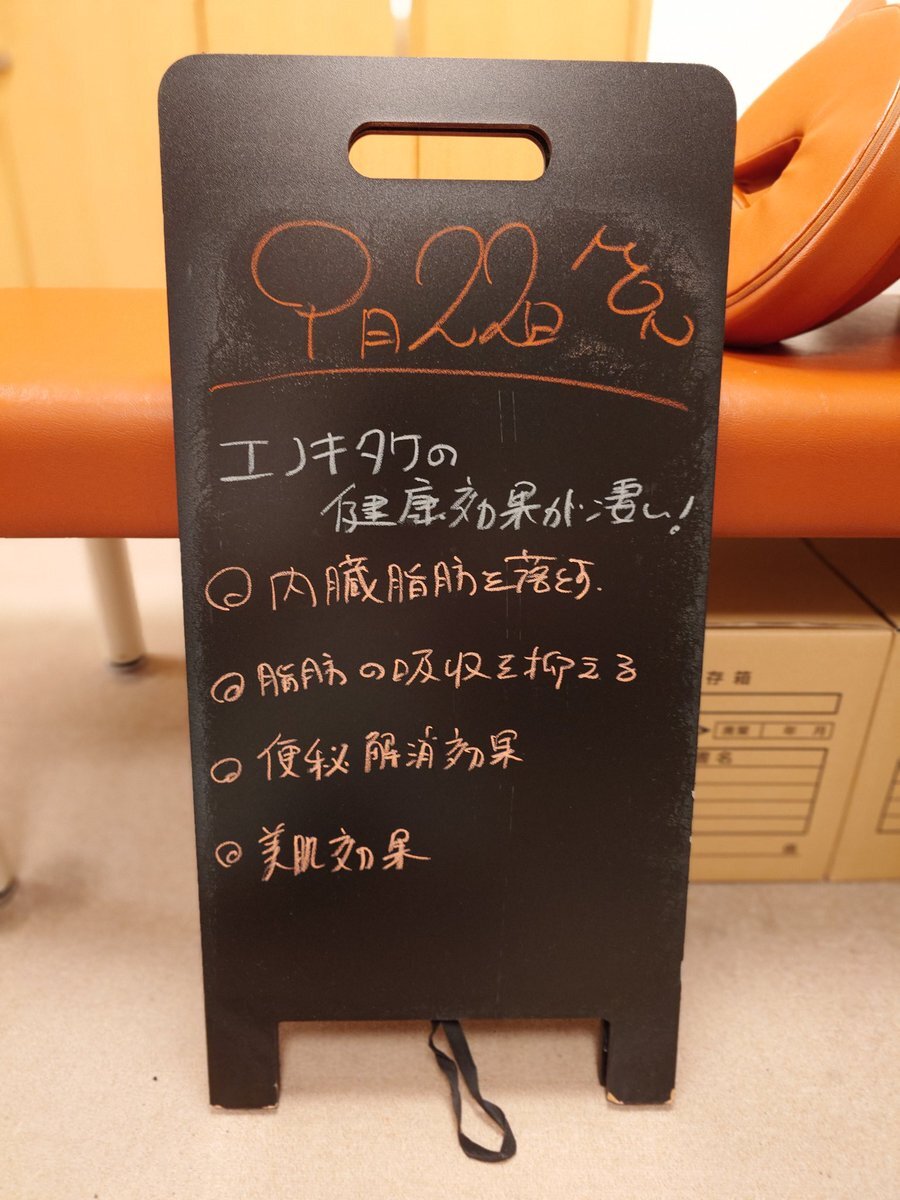 9月22日 Mon
エノキタケの
健康効果が凄い!
◎内臓脂肪を落とす.
◎脂肪の吸収を抑える
◎便秘解消効果
◎美肌効果
存箱
年 月